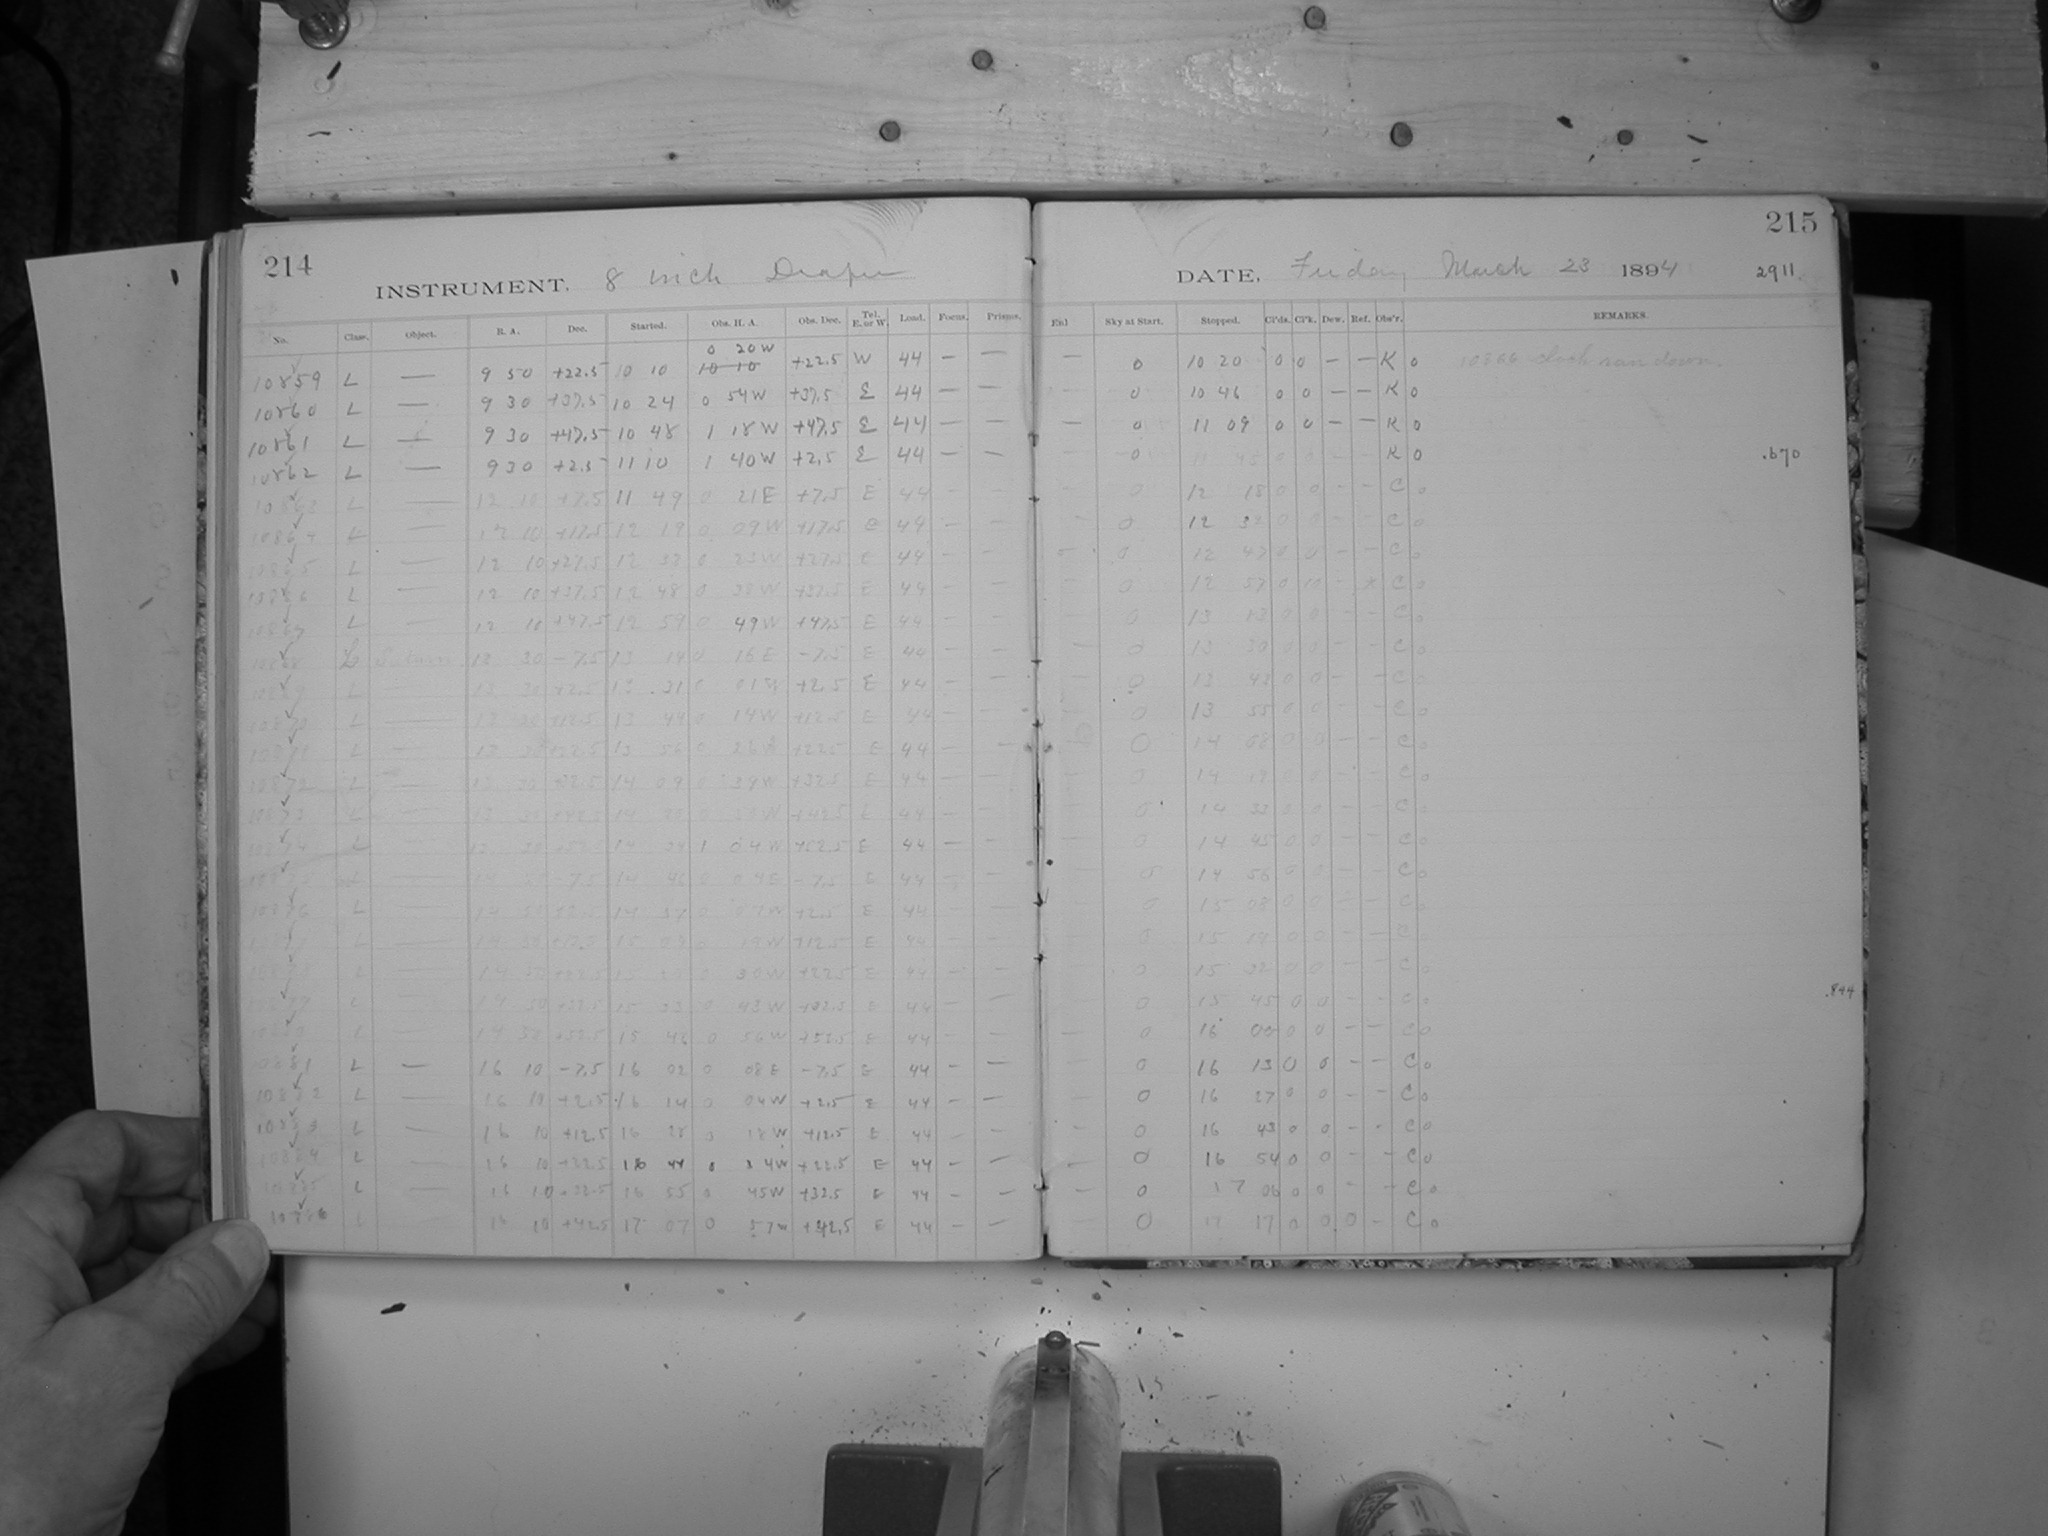 214
INSTRUMENT. 8 inch Draper
No. Class. Object. R. A. Dec. Started. Obs. H. A. Obs. Dec. Tel. E. or W. Load. Focus. Prisms.
0 20 W
10859 L — 9 50 +22.5 10 10 10 10 +22.5 W 44 — —
10860 L — 9 30 +37.5 10 24 0 54 W +37.5 E 44 — —
10861 L — 9 30 +47.5 10 48 1 18 W +47.5 E 44 — —
10862 L — 9 30 +2.5 11 10 1 40 W +2.5 E 44 — —
10863 L — 12 10 +7.5 11 49 0 21 E +7.5 E 44 — —
10864 L — 12 10 +17.5 12 19 0 09 W +17.5 E 44 — —
10865 L — 12 10 +27.5 12 33 0 23 W +27.5 E 44 — —
10866 L — 12 10 +37.5 12 48 0 38 W +37.5 E 44 — —
10867 L — 12 10 +47.5 12 59 0 49 W +47.5 E 44 — —
10868 L Saturn 13 30 -7.5 13 14 0 16 E -7.5 E 44 — —
10869 L — 13 30 +2.5 13 31 0 01 W +2.5 E 44 — —
10870 L — 13 30 +12.5 13 44 0 14 W +12.5 E 44 — —
10871 L — 13 30 +22.5 13 56 0 26 W +22.5 E 44 — —
10872 L — 13 30 +32.5 14 09 0 39 W +32.5 E 44 — —
10873 L — 13 30 +42.5 14 +42.5 E 44 — —
10874 L — 13 30 +52.5 14 34 1 04 W +52.5 E 44 — —
L — 14 50 -7.5 14 46 0 04 E -7.5 E 44 — —
10876 L — 14 50 +2.5 14 57 0 07 W +2.5 E 44 — —
10877 L — 14 50 +12.5 15 09 0 19 W +12.5 E 44 — —
10878 L — 14 50 +22.5 15 20 0 30 W +22.5 E 44 — —
10879 L — 14 50 +32.5 15 33 0 43 W +32.5 E 44 — —
10880 L — 14 50 +52.5 15 46 0 56 W +52.5 E 44 — —
10881 L — 16 10 -7.5 16 02 0 08 E -7.5 E 44 — —
10882 L — 16 10 +2.5 16 14 0 04 W +2.5 E 44 — —
10883 L — 16 10 +12.5 16 28 0 18 W +12.5 E 44 — —
10884 L — 16 10 +22.5 16 44 0 34 W +22.5 E 44 — —
10885 L — 16 10 +32.5 16 55 0 45 W +32.5 E 44 — —
10886 L — 16 10 +42.5 17 07 0 57 W +42.5 E 44 — —
215
DATE, Friday March 23 1894 2911.
Enl Sky at Start. Stopped. Cl'ds. Cl'k. Dew. Ref. Obs'r. REMARKS.
— 0 10 20 0 0 — — K 0 10866 clock ran down.
— 0 10 46 0 0 — — K 0
— 0 11 09 0 0 — — K 0
— 0 11 45 0 0 — — K 0 .670
— 0 12 18 0 0 — — C 0
— 0 12 32 0 0 — — C 0
— 0 12 47 0 0 — — C 0
— 0 12 57 0 10 — * C 0
— 0 13 13 0 0 — — C 0
— 0 13 30 0 0 — — C 0
— 0 13 43 0 0 — — C 0
— 0 13 55 0 0 — — C 0
— 0 14 08 0 0 — — C 0
— 0 14 19 0 0 — — C 0
— 0 14 33 0 0 — — C 0
— 0 14 45 0 0 — — C 0
— 0 14 56 0 0 — — C 0
— 0 15 08 0 0 — — C 0
— 0 15 19 0 0 — — C 0
— 0 15 32 0 0 — — C 0
— 0 15 45 0 0 — — C 0 .844
— 0 16 00 0 0 — — C 0
— 0 16 13 0 0 — — C 0
— 0 16 27 0 0 — — C 0
— 0 16 43 0 0 — — C 0
— 0 16 54 0 0 — — C 0
— 0 17 06 0 0 — — C 0
— 0 17 17 0 0 0 — C 0